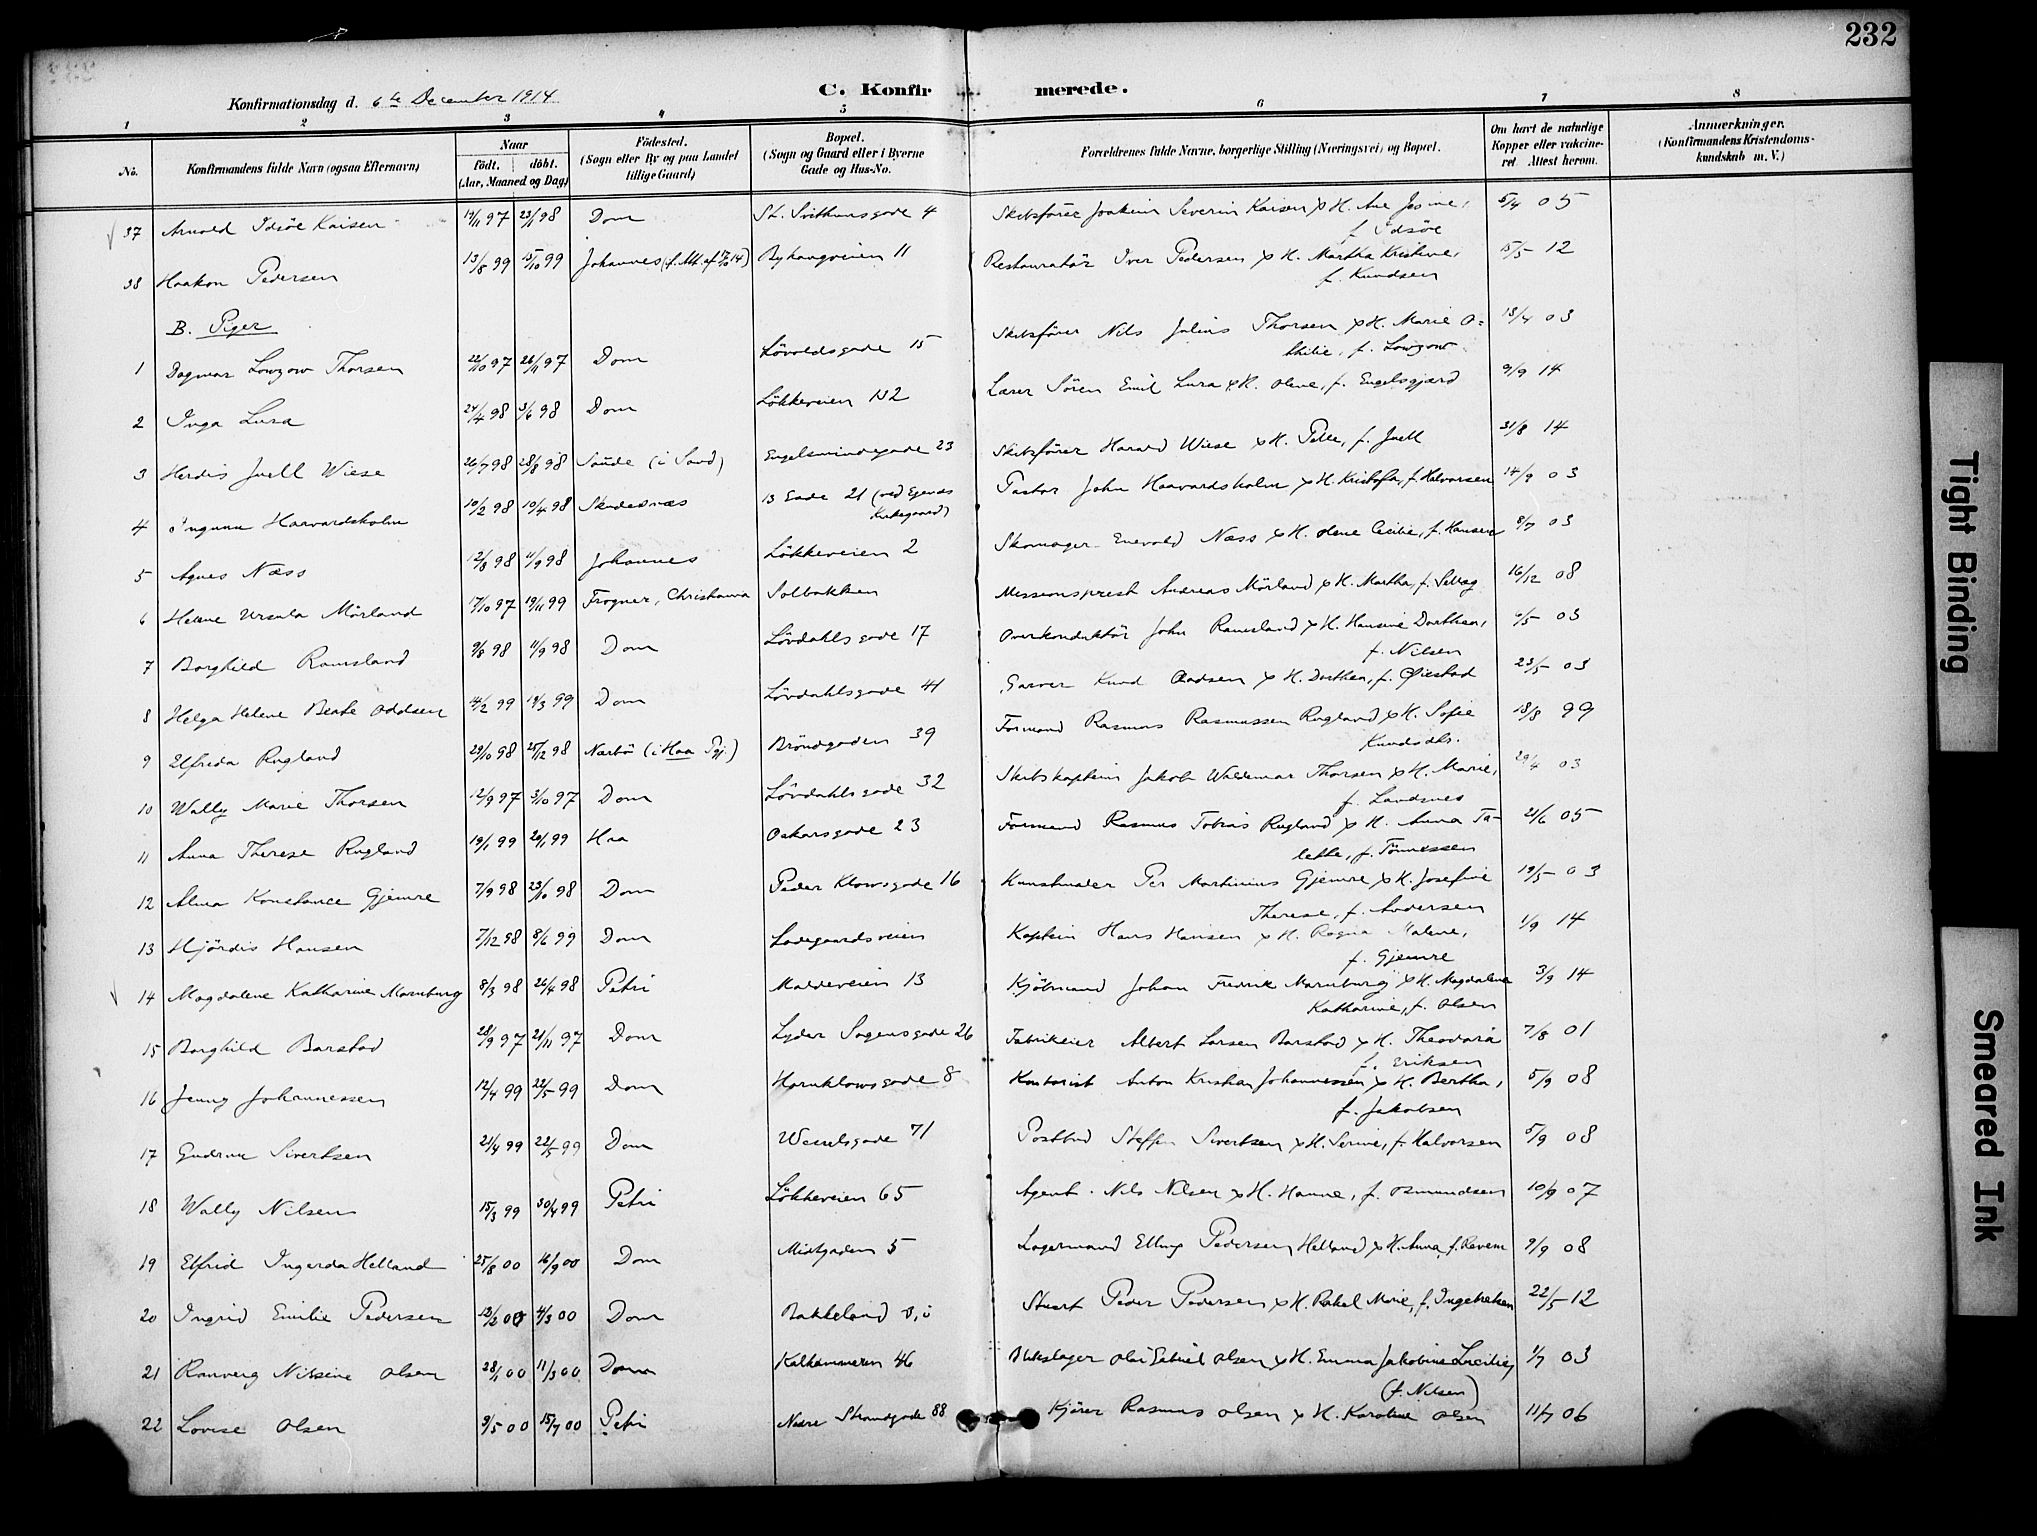 232
Konfirmationsdag d. 6te December 1914
C. Konfirmerede.
1 2 3 4 5 6 7 8
No. Konfirmandens fulde Navn (ogsaa Efternavn) Naar født. døbt. (Aar, Maaned og Dag) Fødested. (Sogn eller By og paa Landet tillige Gaard) Bopæl. (Sogn og Gaard eller i Byerne Gade og Hus-No. Forældrenes fulde Navne, borgerlige Stilling (Næringsvei) og Bopæl. Om havt de naturlige Kopper eller vakcineret Attest herom. Anmærkninger. (Konfirmandens Kristendomskundskab m. V.)
37 Arnold Idsöe Kaisen 19/11 97 23/1 98 Dom St. Svithunsgade 4 Skibsfører Joakim Severin Kaisen x H. Ane Josine, 5/4 05
f. Idsöe
38 Haakon Pedersen 13/8 99 15/10 99 Johannes Byhaugveien 11 Restauratör Iver Pedersen x H. Martha Kristine, 15/5 12
f. Knudsen
B. Piger
1 Dagmar Lowzow Thorsen 22/10 97 26/11 97 Dom Lövoldsgade 15 Skibsfører Nils Julius Thorsen x H. Marie O= 13/4 03
thilie, f. Lowzow
2 Inga Lura 24/4 98 3/6 98 Dom Lökkeveien 112 Lærer Sören Emil Lura x H. Olene, f. Engelsgjærd 9/9 14
3 Herdis Juell Wiese 26/7 98 28/8 98 Saude (i Sand) Engelsmindegade 23 Skibsfører Harald Wiese x H. f. Juell 31/8 14
4 Ingunn Haavardsholm 10/2 98 10/4 98 Skudesnæs 13 Gade 21 (ved Egenæs Kirkegaard) Pastor John Haavardsholm x H. Kristofa, f. Halvorsen 14/9 03
5 Agnes Næss 12/8 98 11/9 98 Johannes Lökkeveien 2 Skomager Enevold Næss x H. Olene Cecilie, f. Hansen 8/7 03
6 Helene Ursula Mörland 17/10 97 19/11 99 Frogner, Christiania Solbakken Missionsprest Andreas Mörland x H. Martha, f. Selvåg 16/12 08
7 Borghild Ramsland 9/8 98 11/9 98 Dom Lövdahlsgade 17 Overkonduktör John Ramsland x H. Hansine Dorthea, 6/5 03
f. Nilsen
8 Helga Helene Beate Oddsen 14/2 99 19/3 99 Dom Lövdahlsgade 41 Garver Knud Oddsen x H. Dorthea, f. Øiestad 23/5 03
9 Elfrida Rugland 29/10 98 25/12 98 Nærbö (i Haa Pgj.) Bröndgaden 39 Formand Rasmus Rasmussen Rugland x H. Sofie 18/8 99
Knudsdtr.
10 Wally Marie Thorsen 12/9 97 3/10 97 Dom Lövdahlsgade 32 Skibskaptein Jakob Waldemar Thorsen x H. Marie, 29/4 03
f. Landsnes
11 Anna Therese Rugland 19/1 99 29/1 99 Haa Oskarsgade 23 Formand Rasmus Tobias Rugland x H. Anna Ta- 21/6 05
lette, f. Tönnessen
12 Alma Konstance Gjemre 7/9 98 23/10 98 Dom Peder Klowsgade 16 Kunstmaler Per Martinius Gjemre x H. Josefine 19/5 03
Therese, f. Andersen
13 Hjördis Hansen 7/12 98 8/6 99 Dom Ladegaardsveien Kaptein Hans Hansen x H. Malene, 1/9 14
f. Gjemre
14 Magdalene Katharine Marnburg 8/3 98 26/4 98 Petri Maldeveien 13 Kjöbmand Johan Fredrik Marnburg x H. Magdalene 3/9 14
Katharine, f. Olsen
15 Borghild Barstad 28/9 97 21/11 97 Dom Lyder Sagensgade 26 Fabrikeier Albert Larsen Barstad x H. Theodora 7/8 01
f. Eriksen
16 Jenny Johannessen 12/4 99 22/5 99 Dom Hornklowsgade 8 Kontorist Anton Kristian Johannessen x H. Bertha, 5/9 08
f. Jakobsen
17 Gudrun Sivertsen 21/4 99 22/5 99 Dom Wesselsgade 71 Postbud Steffen Sivertsen x H. Serine, f. Halvorsen 5/9 08
18 Wally Nilsen 15/3 99 30/4 99 Petri Lökkeveien 65 Agent Nils Nilsen x H. Hanne, f. Osmundsen 10/9 07
19 Elfrid Ingerda Helland 25/8 00 16/9 00 Dom Midtgaden 5 Lagermand Elling Pedersen Helland x H. Anna, f. Revem 9/9 08
20 Ingrid Emilie Pedersen 13/2 00 4/3 00 Dom Bakkeland Stuert Peder Pedersen x H. Rakel Marie, f. Ingebretsen 22/5 12
21 Ranveig Nilsine Olsen 28/1 00 11/3 00 Dom Kalhammeren 46 Blikslager Olai Gabriel Olsen x H. Emma Jakobine Lucilie, 1/7 03
(f. Nilsen)
22 Lovise Olsen 9/5 00 15/7 00 Petri Nedre Strandgade 88 Kjörer Rasmus Olsen x H. Karoline Olsen 11/7 06
Tight Binding
Smeared Ink